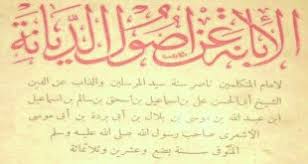 الإبانة عن أصول الديانة
لامام المتكلمين ناصر سنة سيد المرسلين والذاب عن الدين
الشيخ أبى الحسن على بن اسماعيل بن اسحق بن سالم بن اسماعيل
ابن عبد الله بن موسى بن بلال بن أبى بردة بن أبى موسى
الاشعرى صاحب رسول الله صلى الله عليه وسلم
المتوفى سنة بضع وعشرين وثلاثمائة